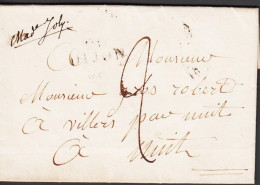 Mad. Joly
DIJON
2
Monsieur
Monsieur robert
à villers par nuit
à nuits